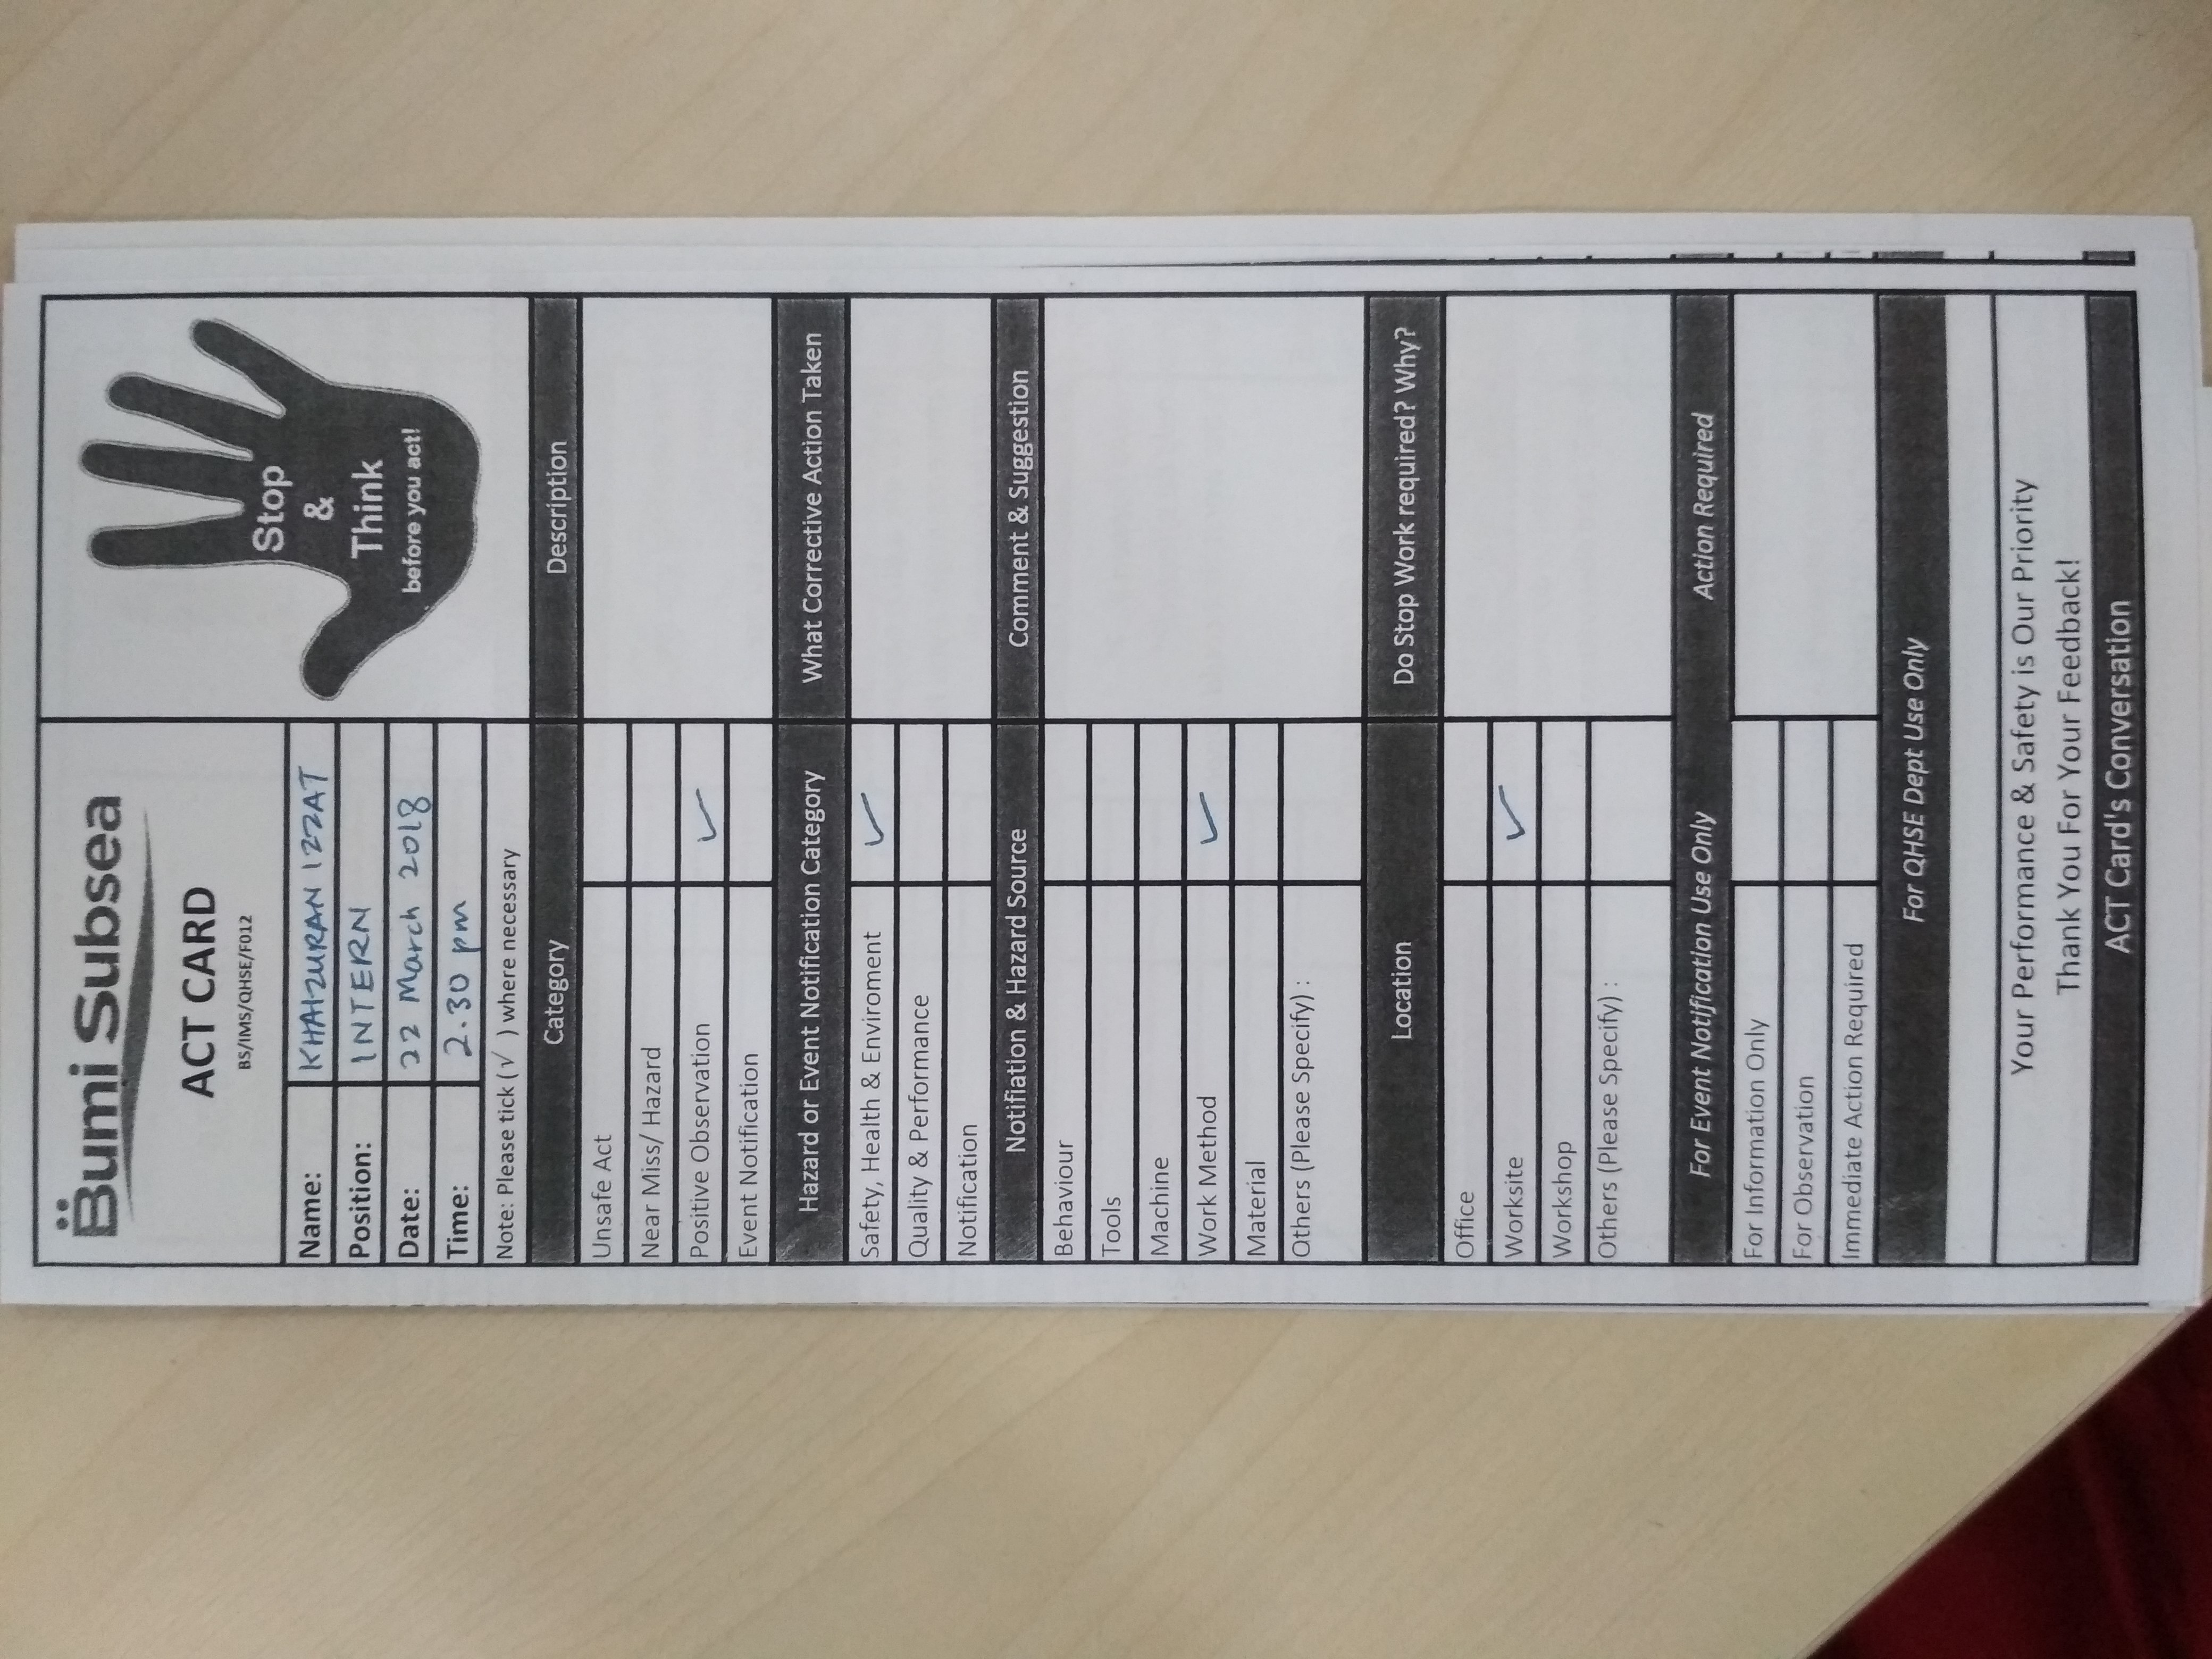 Bumi Subsea
ACT CARD
BS/IMS/QHSE/F012
Stop
&
Think
before you act!
Name: KHAIZURAN IZZAT
Position: INTERN
Date: 22 March 2018
Time: 2.30 pm
Note: Please tick (√ ) where necessary
Category Description
Unsafe Act
Near Miss/ Hazard
Positive Observation ✓
Event Notification
Hazard or Event Notification Category What Corrective Action Taken
Safety, Health & Enviroment ✓
Quality & Performance
Notification
Notifiation & Hazard Source Comment & Suggestion
Behaviour
Tools
Machine
Work Method ✓
Material
Others (Please Specify) :
Location Do Stop Work required? Why?
Office
Worksite ✓
Workshop
Others (Please Specify) :
For Event Notification Use Only Action Required
For Information Only
For Observation
Immediate Action Required
For QHSE Dept Use Only
Your Performance & Safety is Our Priority
Thank You For Your Feedback!
ACT Card's Conversation